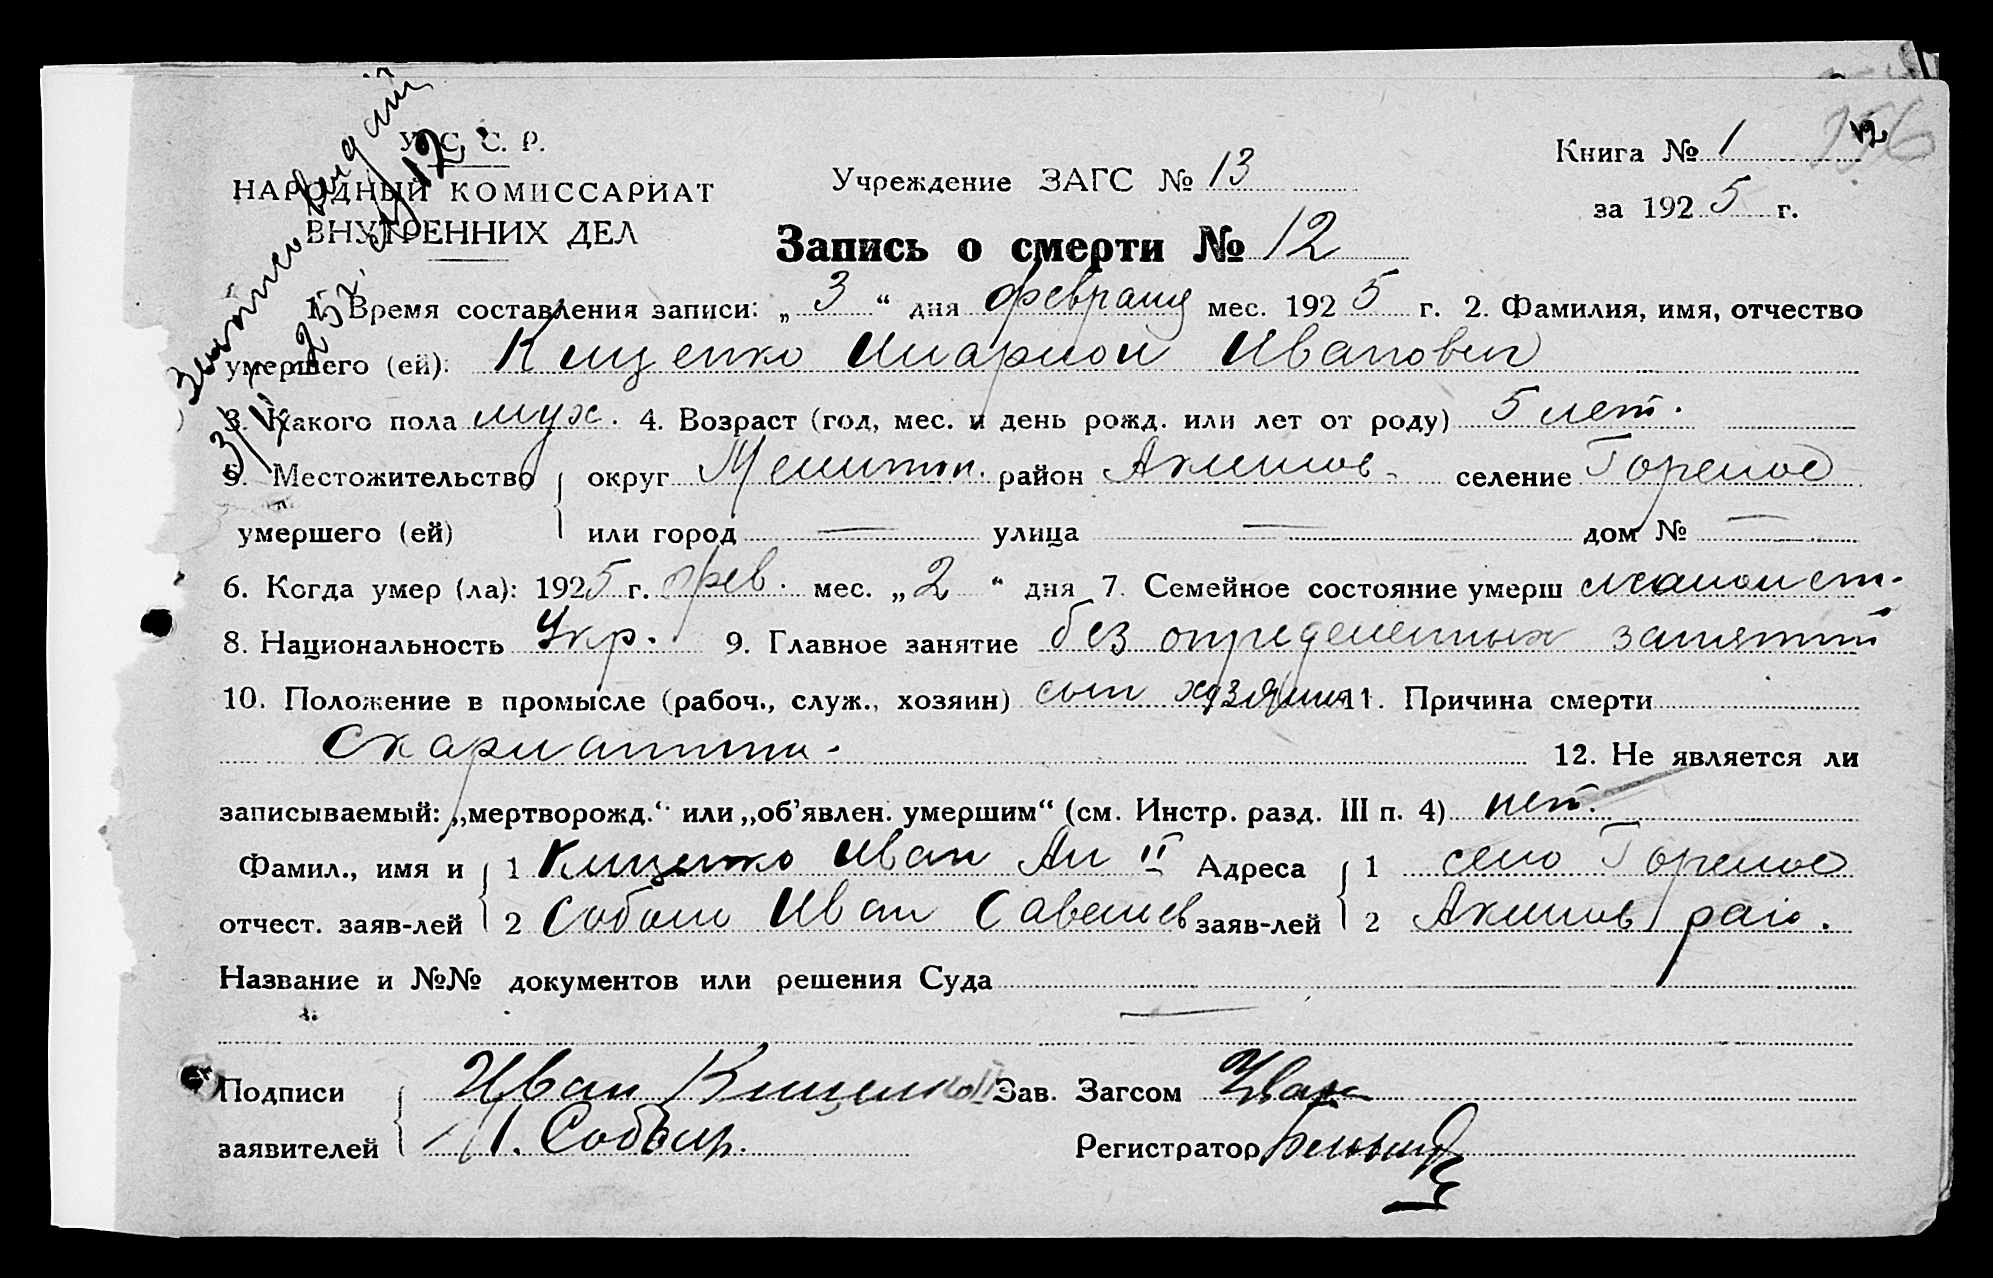 У. С. С. Р.
НАРОДНЫЙ КОМИССАРИАТ
ВНУТРЕННИХ ДЕЛ
Учреждение ЗАГС № 13
Книга № 1
за 1925 г.
Запись о смерти № 12
1. Время составления записи: „3“ дня февраля мес. 1925 г. 2. Фамилия, имя, отчество
умершего (ей): Клиценко Иларион Иванович
3. Какого пола муж. 4. Возраст (год, мес. и день рожд. или лет от роду) 5 лет.
5. Местожительство округ Мелитоп. район Акимов- селение Горелое
умершего (ей) или город — улица — дом № —
6. Когда умер (ла): 1925 г. фев. мес. „2“ дня 7. Семейное состояние умерш
8. Национальность Укр. 9. Главное занятие без определенных занятий
10. Положение в промысле (рабоч., служ., хозяин) сын хозяина 11. Причина смерти
Скарлатина.
12. Не является ли
записываемый: „мертворожд.“ или „об'явлен. умершим“ (см. Инстр. разд. III п. 4) нет.
Фамил., имя и 1 Клиценко Иван Ан II Адреса 1 село Горелое
отчест. заяв-лей 2 Соболь Иван Савельев заяв-лей 2 Акимов рай.
Название и №№ документов или решения Суда
—
Подписи Иван Клиценко Зав. Загсом
заявителей И. Соболь. Регистратор